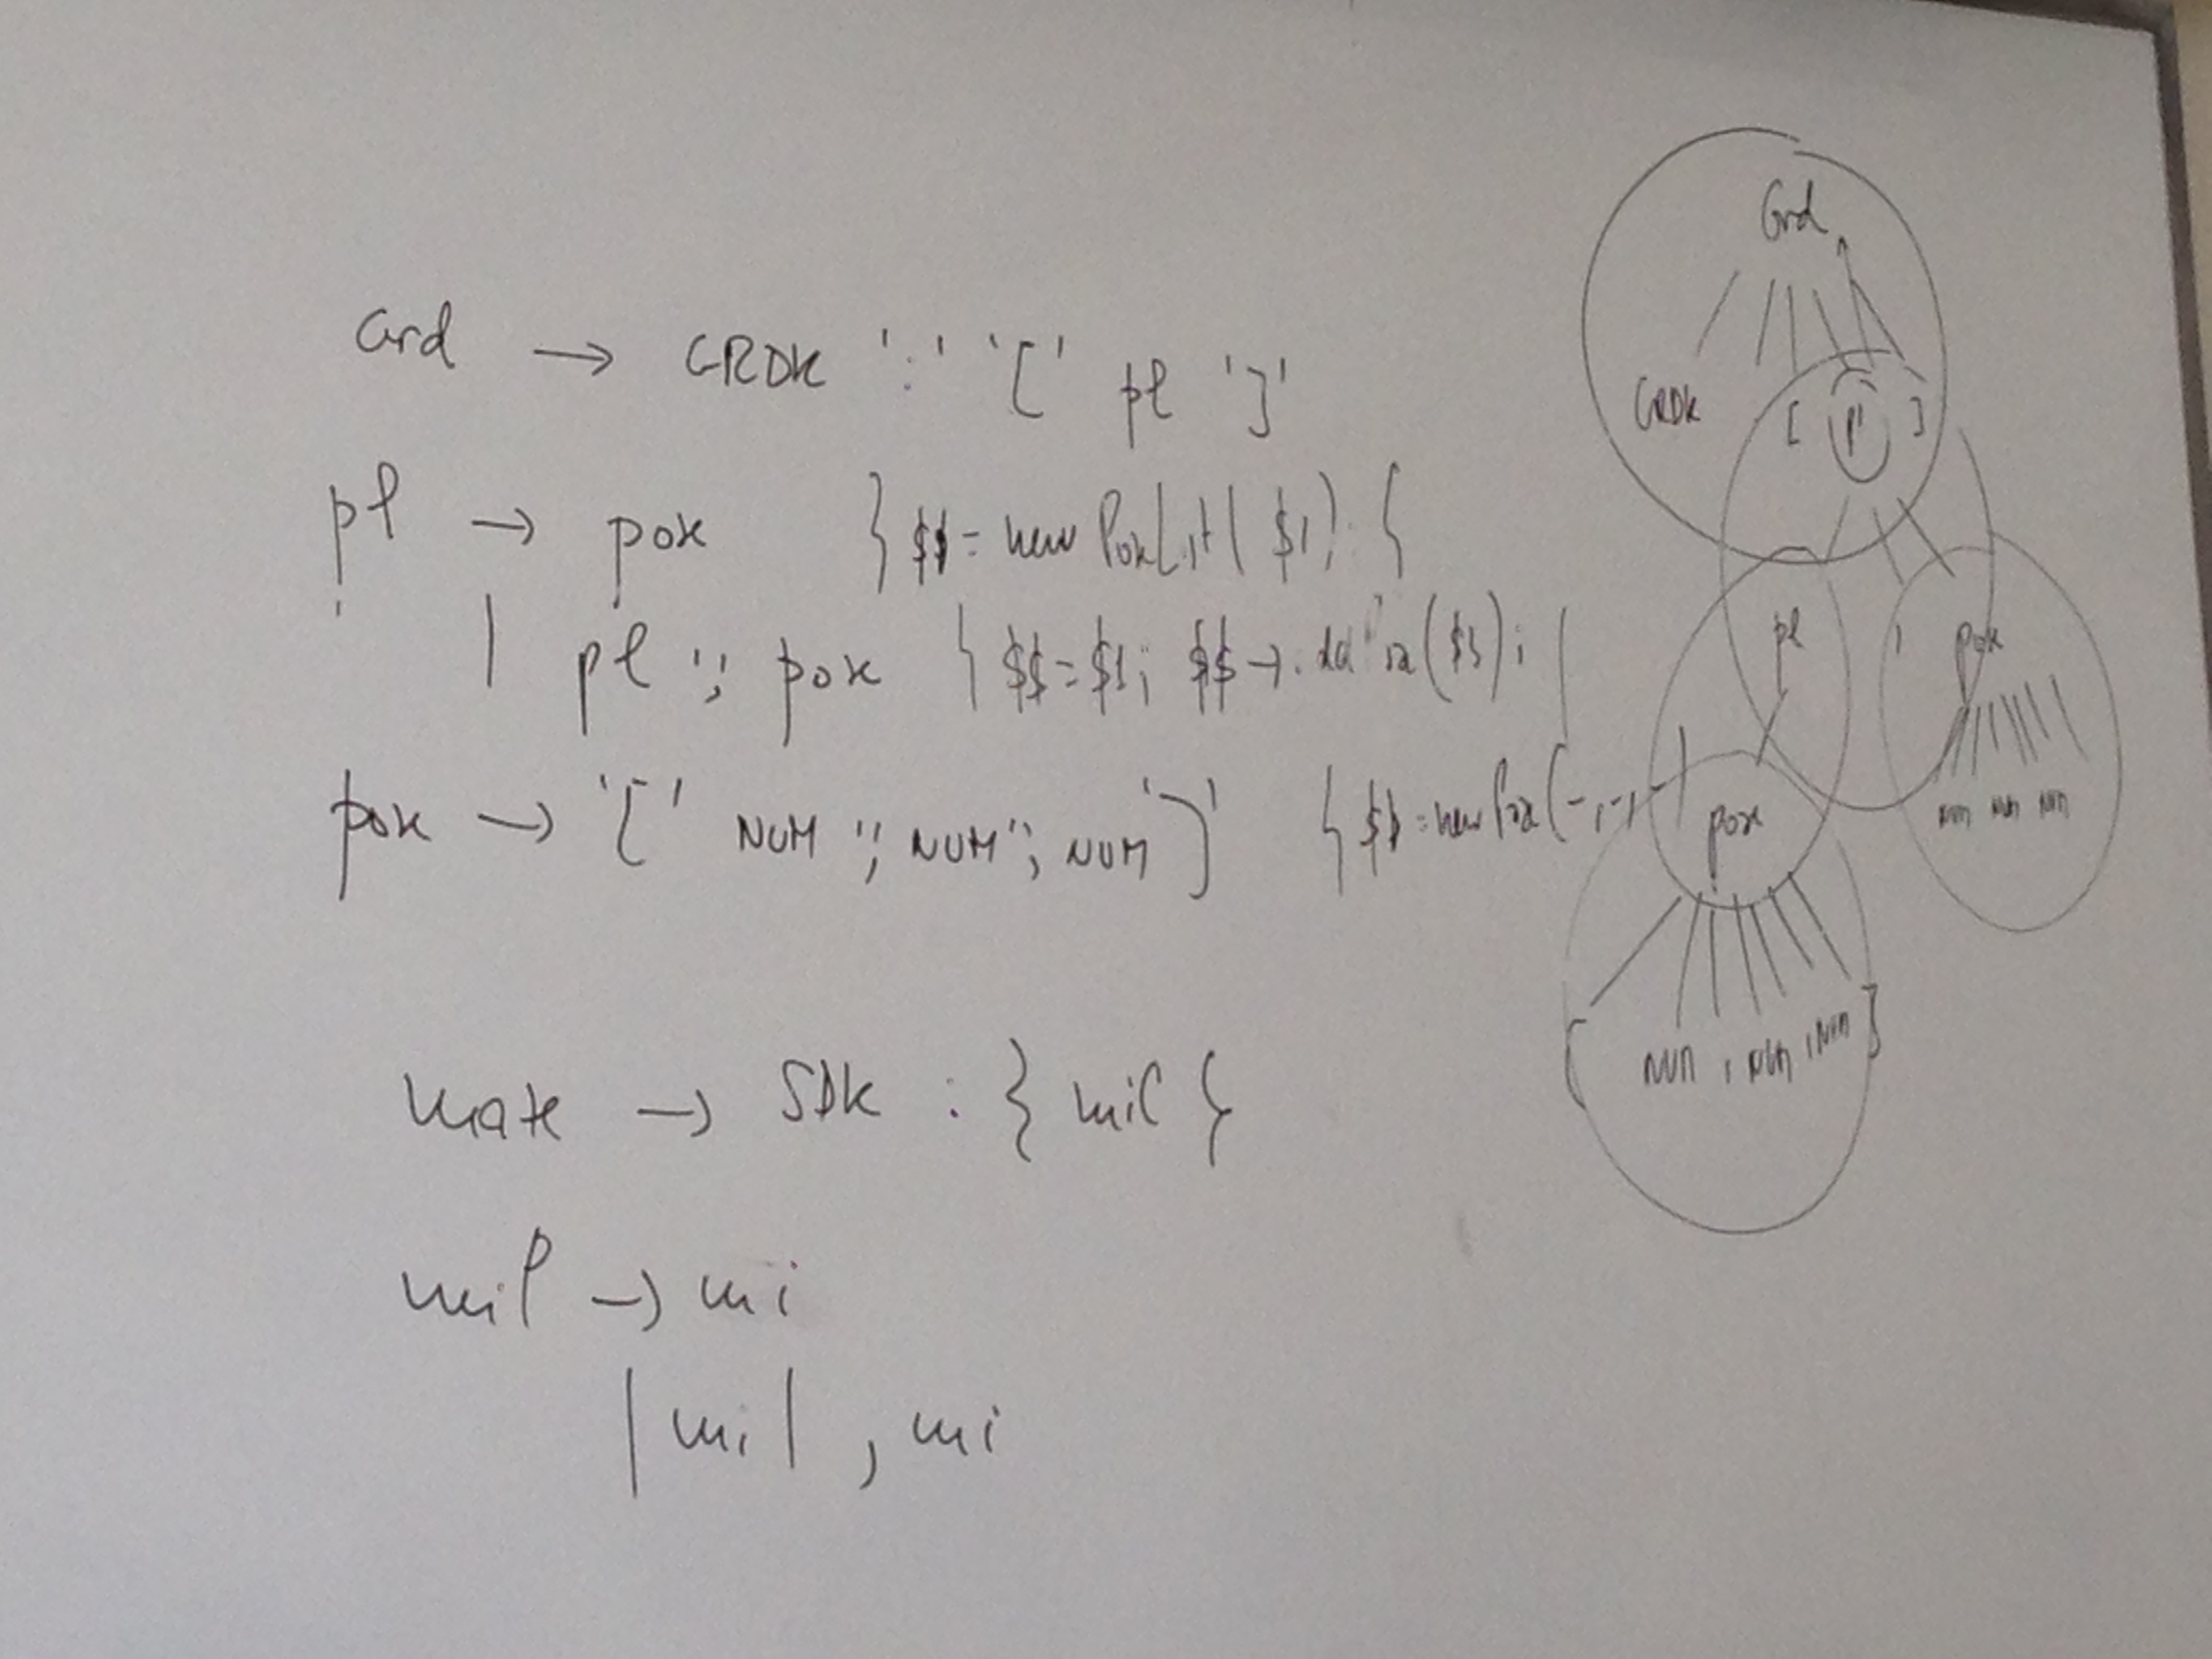 Grd → GRDK ':' '[' pl ']'
pl → pox } $$ = new PoxList( $1 ); {
| pl ',' pox { $$ = $1; $$ → ($3);
pox → '[' NUM ',' NUM ',' NUM ']' { $$ = new Pox(-,-,-)
→ SDK : } mil {
mil → mi
| mil , mi
Grd
GRDK [ pl ]
pl , pox
NUM NUM NUM
pox
[ NUM , NUM , NUM ]